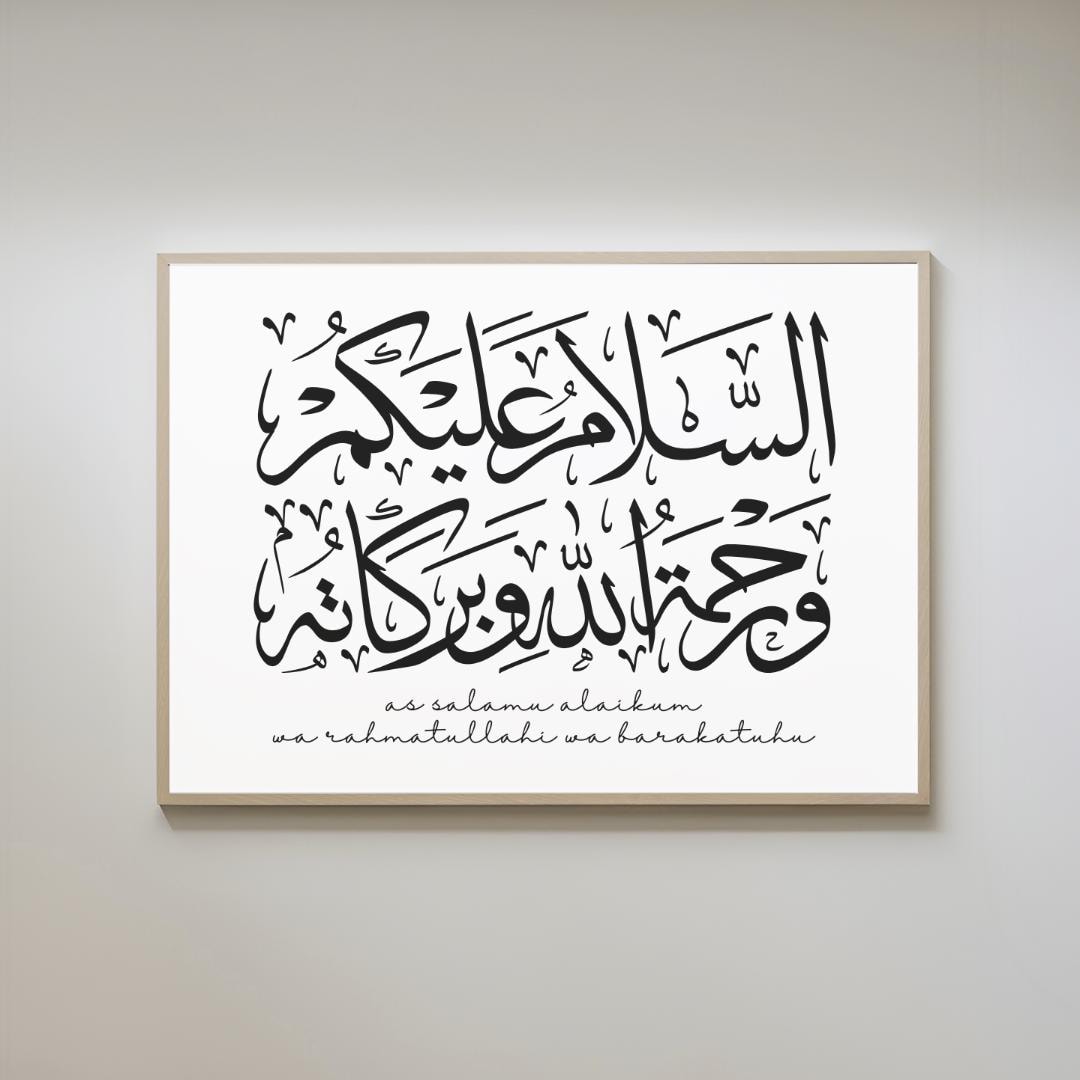 السَّلَامُ عَلَيْكُمْ
وَرَحْمَةُ اللّٰهِ وَبَرَكَاتُهُ
as salamu alaikum
wa rahmatullahi wa barakatuhu